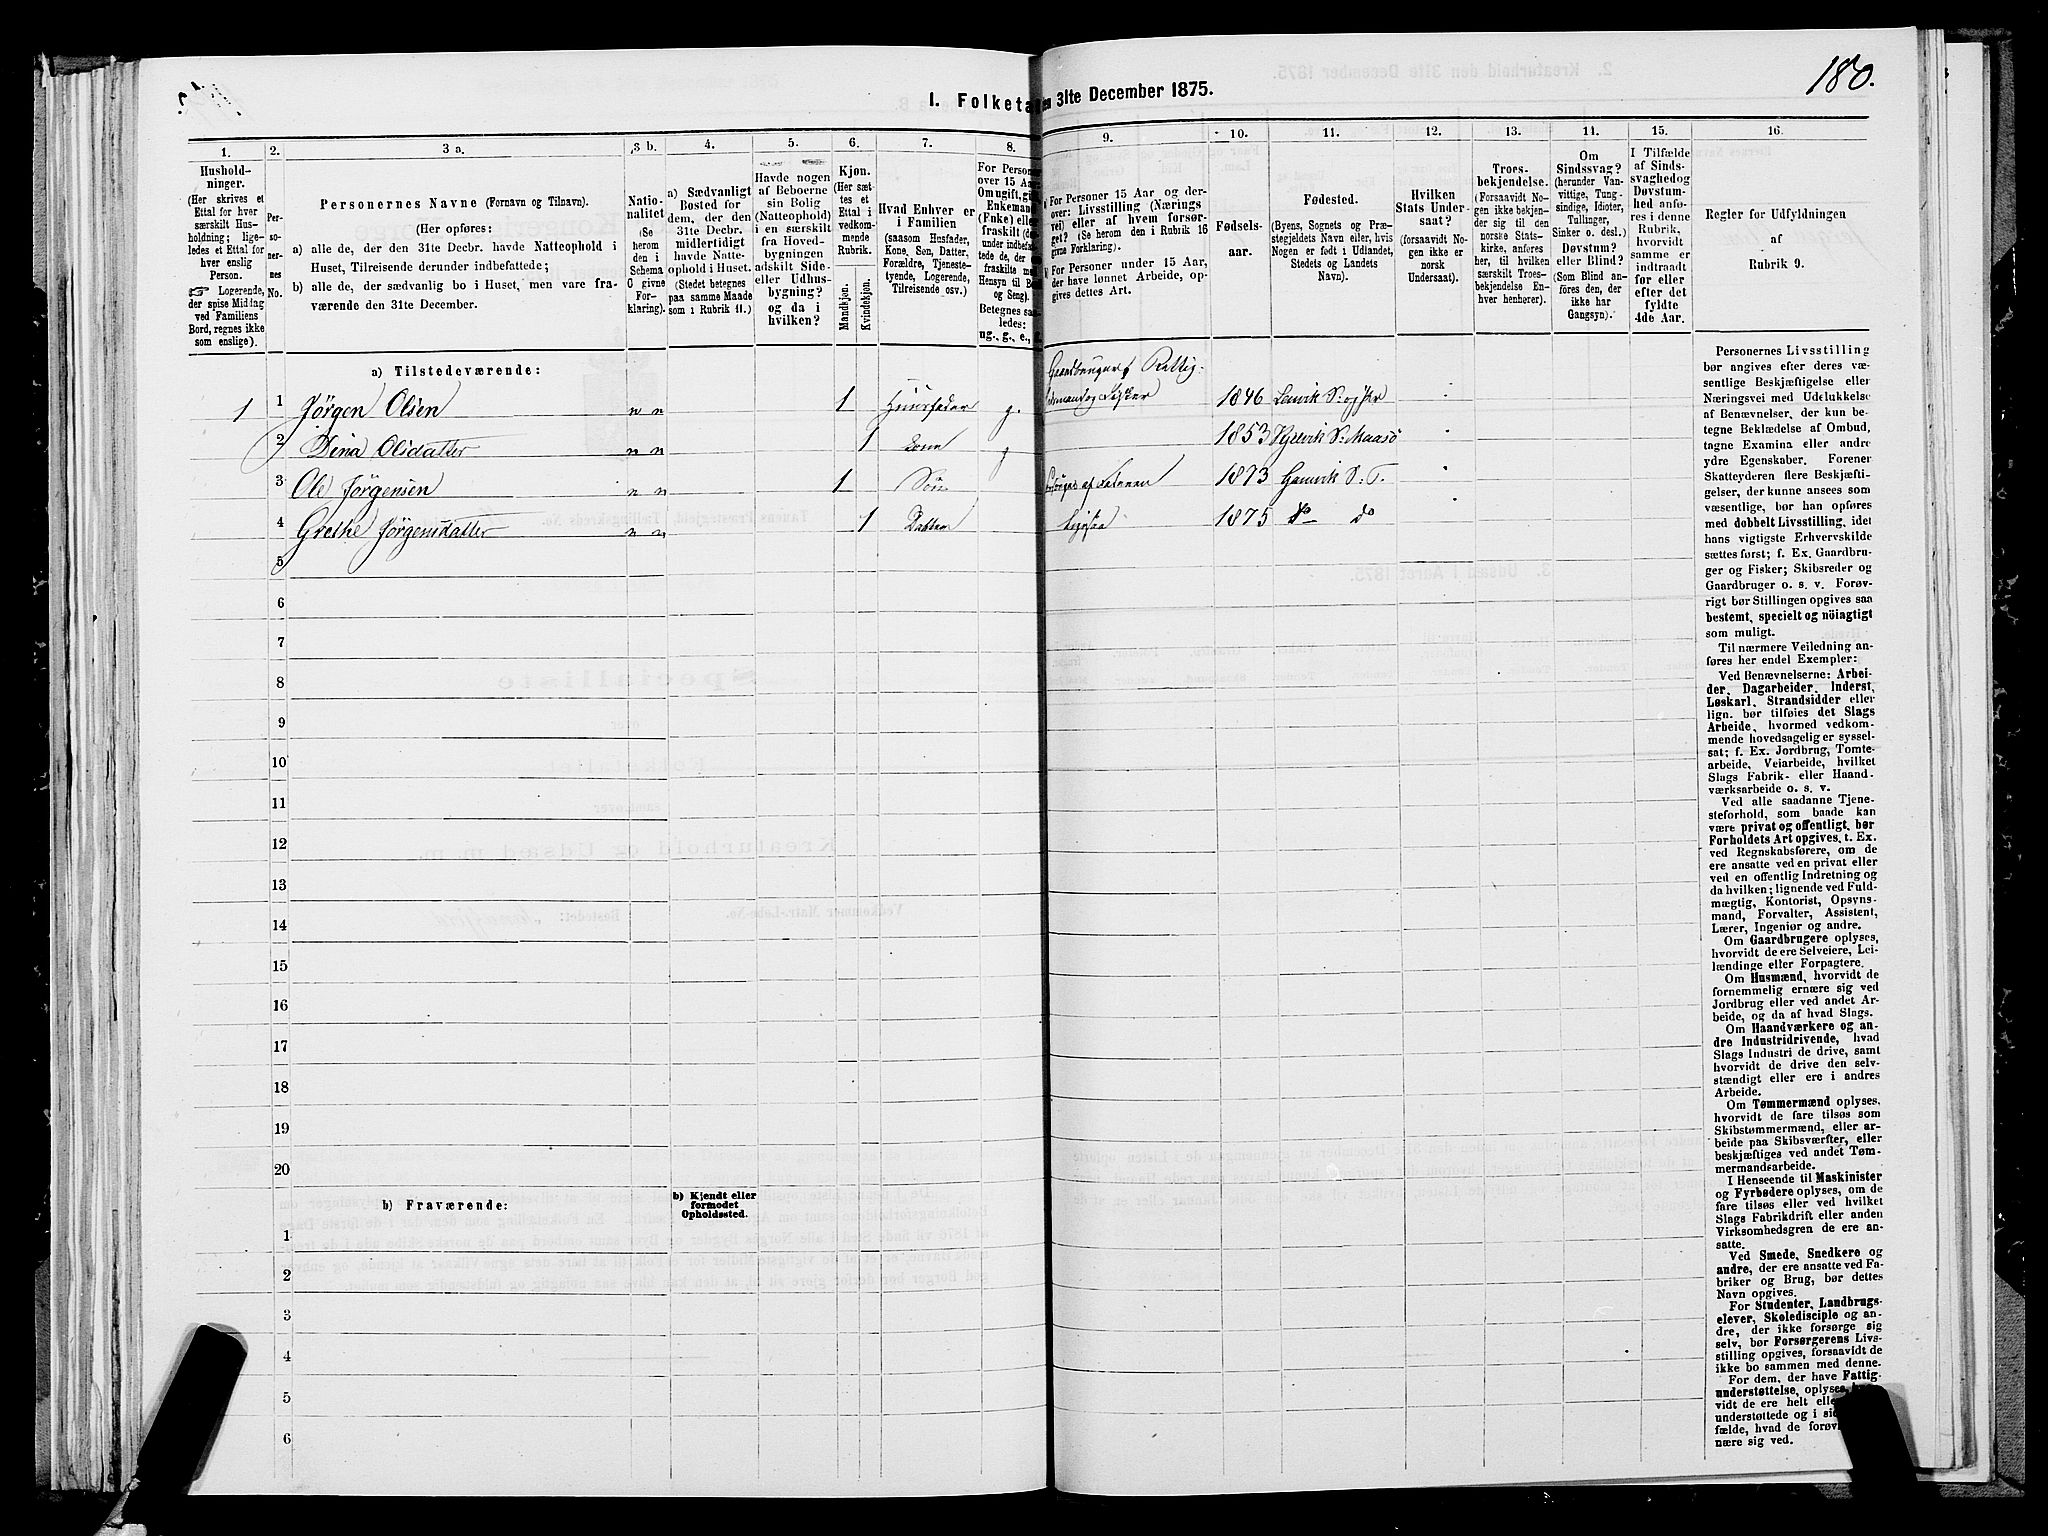 180.
I. Folketa en 31te December 1875.
1. 2. 3 a. 3 b. 4. 5. 6. 7. 8. 9. 10. 11. 12. 13. 14. 15. 16.
Hushold-
ninger.
(Her skrives et
Ettal for hver
særskilt Hus-
holdning; lige-
ledes et Ettal for
hver enslig
Person.
☞ Logerende,
der spise Middag
ved Familiens
Bord, regnes ikke
som enslige).
Per-
so-
ner-
nes
No.
Personernes Navne (Fornavn og Tilnavn).
(Her opføres:
a) alle de, der den 31te Decbr. havde Natteophold i
Huset, Tilreisende derunder indbefattede;
b) alle de, der sædvanlig bo i Huset, men vare fra-
værende den 31te December.
Natio-
nalitet
(Se
herom
den i
Schema
C givne
For-
klaring).
a) Sædvanligt
Bosted for
dem, der den
31te Decbr.
midlertidigt
havde Natte-
ophold i Huset.
(Stedet betegnes
paa samme Maade
som i Rubrik 11.)
Havde nogen
af Beboerne
sin Bolig
(Natteophold)
i en særskilt
fra Hoved-
bygningen
adskilt Side-
eller Udhus-
bygning?
og da i
hvilken?
Kjøn.
(Her sæt-
tes et
Ettal i
vedkom-
mende
Rubrik.
Mandkjøn.
Kvindekjøn.
Hvad Enhver er
i Familien
(saasom Husfader,
Kone, Søn, Datter,
Forældre, Tjeneste-
tyende, Logerende,
Tilreisende osv.)
For Personer
over 15 Aar,
Omugift, gift,
Enkemand
(Enke) eller
fraskilt (der-
under indbefat-
tede de, der
fraskilte med
Hensyn til Bord
og Seng).
Betegnes saa-
ledes:
ug., g., e.,
For Personer 15 Aar og der-
over: Livsstilling (Nærings
vei) eller af hvem forsør-
get? (Se herom den i Rubrik 16
givne Forklaring).
For Personer under 15 Aar,
der have lønnet Arbeide, op-
gives dettes Art.
Fødsels-
aar.
Fødested.
(Byens, Sognets og Præ-
stegjeldets Navn eller, hvis
Nogen er født i Udlandet,
Stedets og Landets
Navn).
Hvilken
Stats Under-
saat?
(forsaavidt No-
gen ikke er
norsk
Undersaat).
Troes-
bekjendelse.
(Forsaavidt No-
gen ikke bekjen-
der sig til den
norske Stats-
kirke, anføres
her, til hvilken
særskilt Troes-
bekjendelse En-
hver henhører).
Om
Sindssvag?
(herunder Van-
vittige, Tung-
sindige, Idioter,
Tullinger,
Sinker o. desl.)
Døvstum?
eller Blind?
(Som Blind an-
føres den, der
ikke har
Gangsyn).
I Tilfælde
af Sinds-
svaghed og
Døvstum-
hed anfø-
res i denne
Rubrik,
hvorvidt
samme er
indtraadt
før eller
efter det
fyldte
4de Aar.
Regler for Udfyldningen
af
Rubrik 9.
a) Tilstedeværende:
Gaardbruger,
1 1 Jørgen Olsen n n 1 Huusfader g. og Fisker 1846 Lenvik
2 Dina Olsdatter n n 1 Kone g 1853 Kjelvik S. Maasö
3 Ole Jørgensen n n 1 Søn af Faderen 1873 Gamvik S. T.
4 Grethe Jørgensdatter n n 1 Datter Ligesaa 1875 do do
5
6
7
8
9
10
11
12
13
14
15
16
17
18
19
20
b) Fraværende:
b) Kjendt eller
formodet
Opholdssted.
1
2
3
4
5
6
Personernes Livsstilling
bør angives efter deres væ-
sentlige Beskjæftigelse eller
Næringsvei med Udelukkelse
af Benævnelser, der kun be-
tegne Beklædelse af Ombud,
tagne Examina eller andre
ydre Egenskaber. Forener
Skatteyderen flere Beskjæfti-
gelser, der kunne ansees som
væsentlige, bør han opføres
med dobbelt Livsstilling, idet
hans vigtigste Erhvervskilde
sættes først; f. Ex. Gaardbru-
ger og Fisker; Skibsreder og
Gaardbruger o. s. v. Forøv-
rigt bør Stillingen opgives saa
bestemt, specielt og nöiagtigt
som muligt.
Til nærmere Veiledning an-
føres her endel Exempler:
Ved Benævnelserne: Arbei-
der, Dagarbeider, Inderst,
Løskarl, Strandsidder eller
lign. bør tilføies det Slags
Arbeide, hvormed vedkom-
mende hovedsagelig er syssel-
sat; f. Ex. Jordbrug, Tomte-
arbeide, Veiarbeide, hvilket
Slags Fabrik- eller Haand-
værksarbeide o. s. v.
Ved alle saadanne Tjene-
steforhold, som baade kan
være privat og offentligt, bør
Forholdets Art opgives, t. Ex.
ved Regnskabsførere, om de
ere ansatte ved en privat eller
ved en offentlig Indretning og
da hvilken; lignende ved Fuld-
mægtig, Kontorist, Opsyns-
mand, Forvalter, Assistent,
Lærer, Ingeniør og andre.
Om Gaardbrugere oplyses,
hvorvidt de ere Selveiere, Lei-
lændinge eller Forpagtere.
Om Husmænd, hvorvidt de
fornemmelig ernære sig ved
Jordbrug eller ved andet Ar-
beide, og da af hvad Slags.
Om Haandværkere og an-
dre Industridrivende, hvad
Slags Industri de drive, samt
hvorvidt de drive den selv-
stændigt eller ere i andres
Arbeide.
Om Tømmermænd oplyses,
hvorvidt de fare tilsøs som
Skibstømmermænd, eller ar-
beide paa Skibsværfter, eller
beskjæftiges ved andet Tøm-
mermandsarbeide.
I Henseende til Maskinister
og Fyrbødere oplyses, om de
fare tilsøs eller ved hvilket
Slags Fabrikdrift eller anden
Virksomhedsgren de ere an-
satte.
Ved Smede, Snedkere og
andre, der ere ansatte ved Fa-
briker og Brug, bør dettes
Navn opgives.
For Studenter, Landbrugs-
elever, Skoledisciple og an-
dre, der ikke forsørge sig
selv, bør Forsørgerens Livs-
stilling opgives, forsaavidt de
ikke bo sammen med denne.
For dem, der have Fattig-
understøttelse, oplyses,
vidt de ere helt elle
understøttede og i si
fælde, hvad de forøv
nære sig ved.